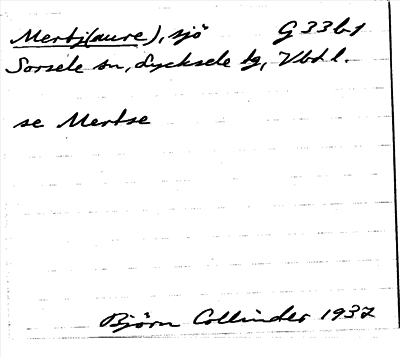 Mertj(aure), sjö G 33b1
Sorsele sn, Lycksele tg, Vbtl.
se Mertse
Björn Collinder 1937